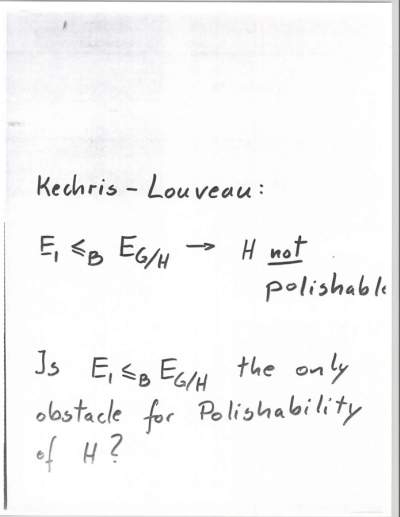 Kechris - Louveau:
E₁ ≤_B E_{G/H} → H not
polishable
Is E₁ ≤_B E_{G/H} the only
obstacle for Polishability
of H?